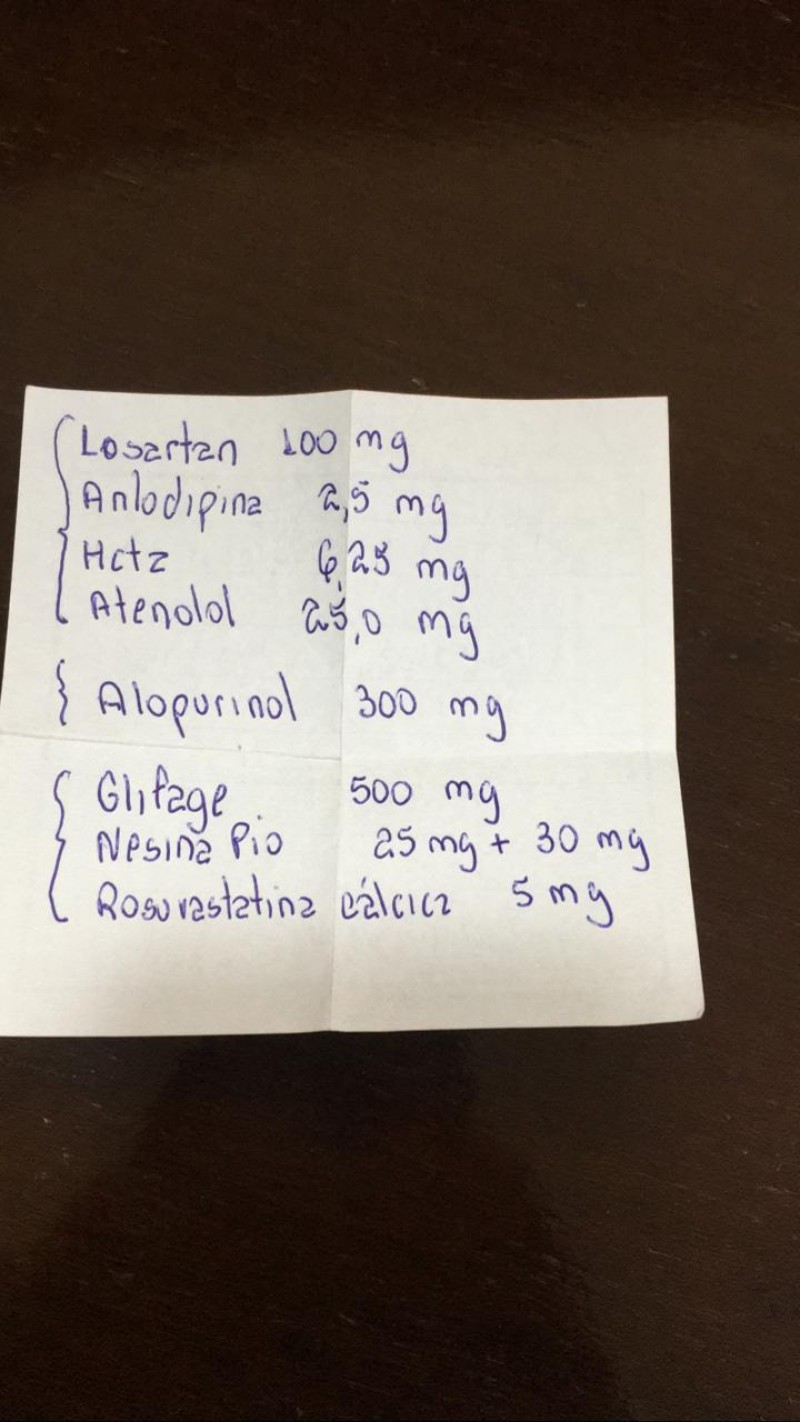 Losartan 100 mg
Anlodipina 2,5 mg
Hctz 6,25 mg
Atenolol 25,0 mg
Alopurinol 300 mg
Glifage 500 mg
Nesina Pio 25 mg + 30 mg
Rosuvastatina cálcica 5 mg